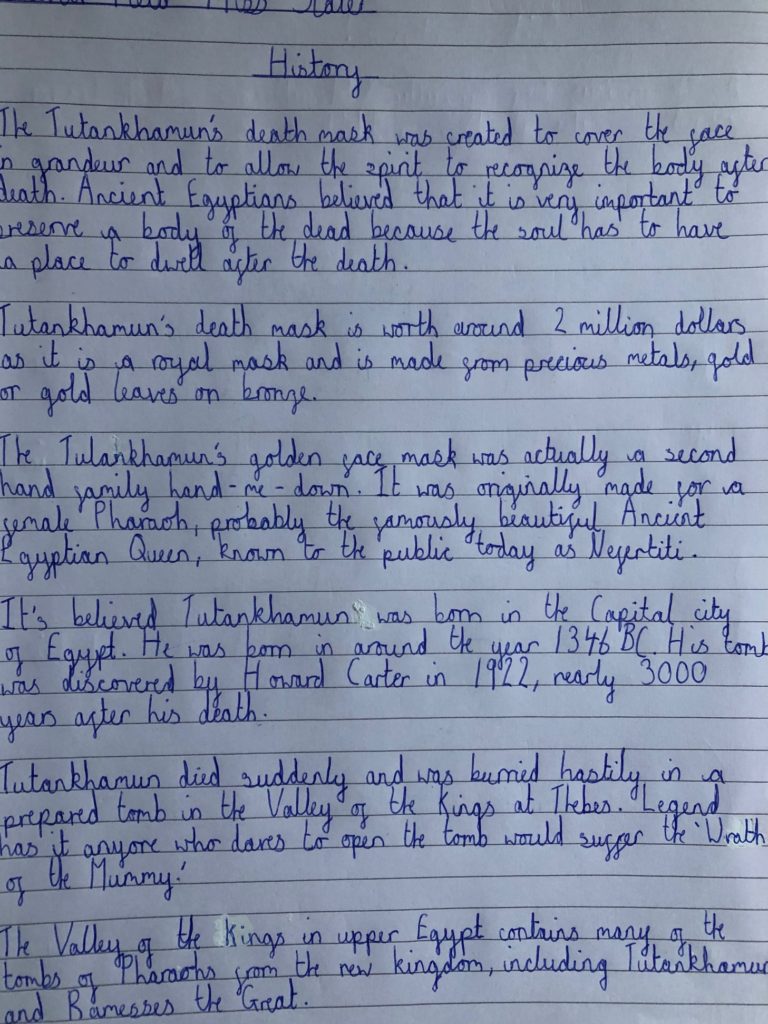 History
The Tutankhamun's death mask was created to cover the face
in grandeur and to allow the spirit to recognize the body after
death. Ancient Egyptians believed that it is very important to
preserve a body of the dead because the soul has to have
a place to dwell after the death.
Tutankhamun's death mask is worth around 2 million dollars
as it is a royal mask and is made from precious metals, gold
or gold leaves on bronze.
The Tulankhamun's golden face mask was actually a second
hand family hand-me-down. It was originally made for a
female Pharaoh, probably the famously beautiful Ancient
Egyptian Queen, known to the public today as Nefertiti.
It's believed Tutankhamun was born in the Capital city
of Egypt. He was born in around the year 1346 BC. His tomb
was discovered by Howard Carter in 1922, nearly 3000
years after his death.
Tutankhamun died suddenly and was burried hastily in a
prepared tomb in the Valley of the Kings at Thebes. Legend
has it anyone who dares to open the tomb would suffer the 'Wrath
of the Mummy.'
The Valley of the Kings in upper Egypt contains many of the
tombs of Pharaohs from the new kingdom, including Tutankhamun
and Ramesses the Great.